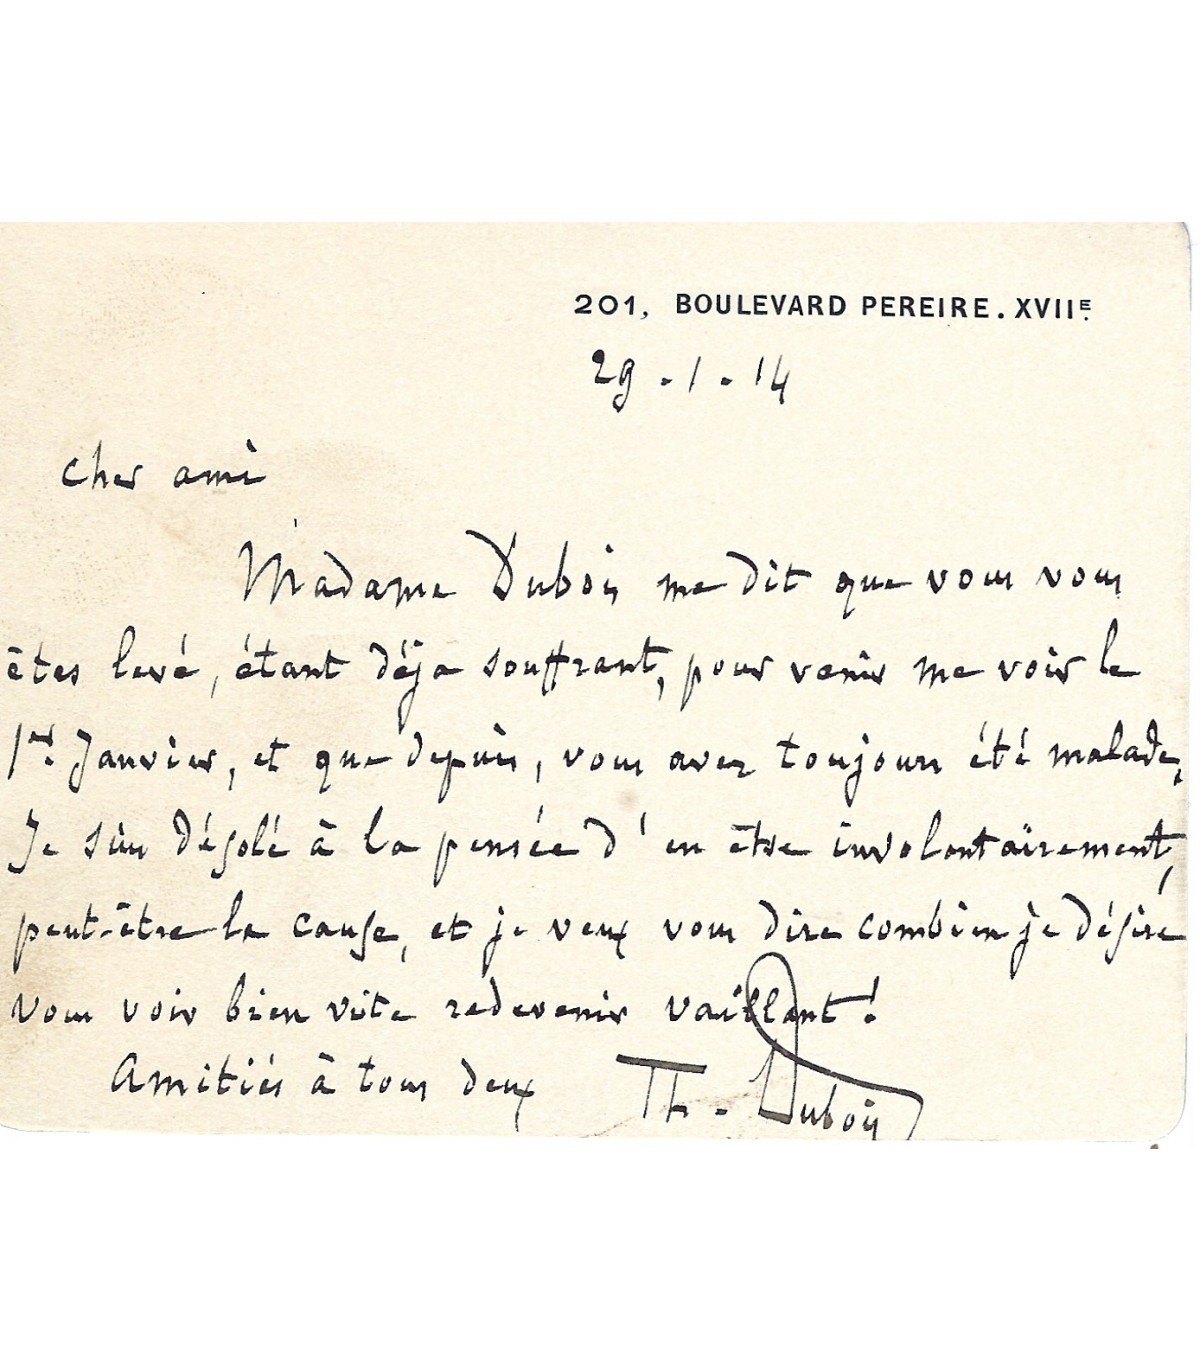 201, BOULEVARD PEREIRE. XVIIE.
29 - 1 - 14
Cher ami
Madame Dubois me dit que vous vous
êtes levé, étant déjà souffrant, pour venir me voir le
1er. Janvier, et que depuis, vous avez toujours été malade,
Je suis désolé à la pensée d'en être involontairement,
peut-être la cause, et je veux vous dire combien je désire
vous voir bien vite redevenir vaillant!
Amitiés à tous deux
Th. Dubois